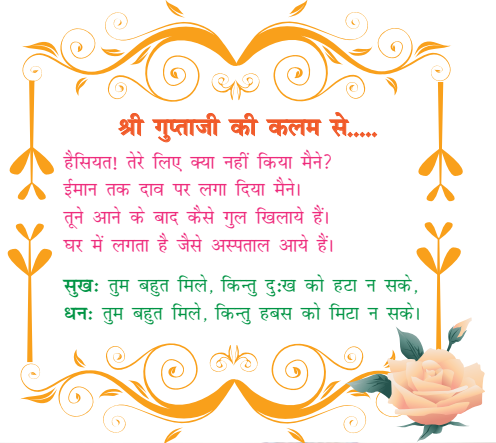 श्री गुप्ताजी की कलम से.....
हैसियत! तेरे लिए क्या नहीं किया मैने?
ईमान तक दाव पर लगा दिया मैने।
तूने आने के बाद कैसे गुल खिलाये हैं।
घर में लगता है जैसे अस्पताल आये हैं।
सुखः तुम बहुत मिले, किन्तु दुःख को हटा न सके,
धनः तुम बहुत मिले, किन्तु हबस को मिटा न सके।